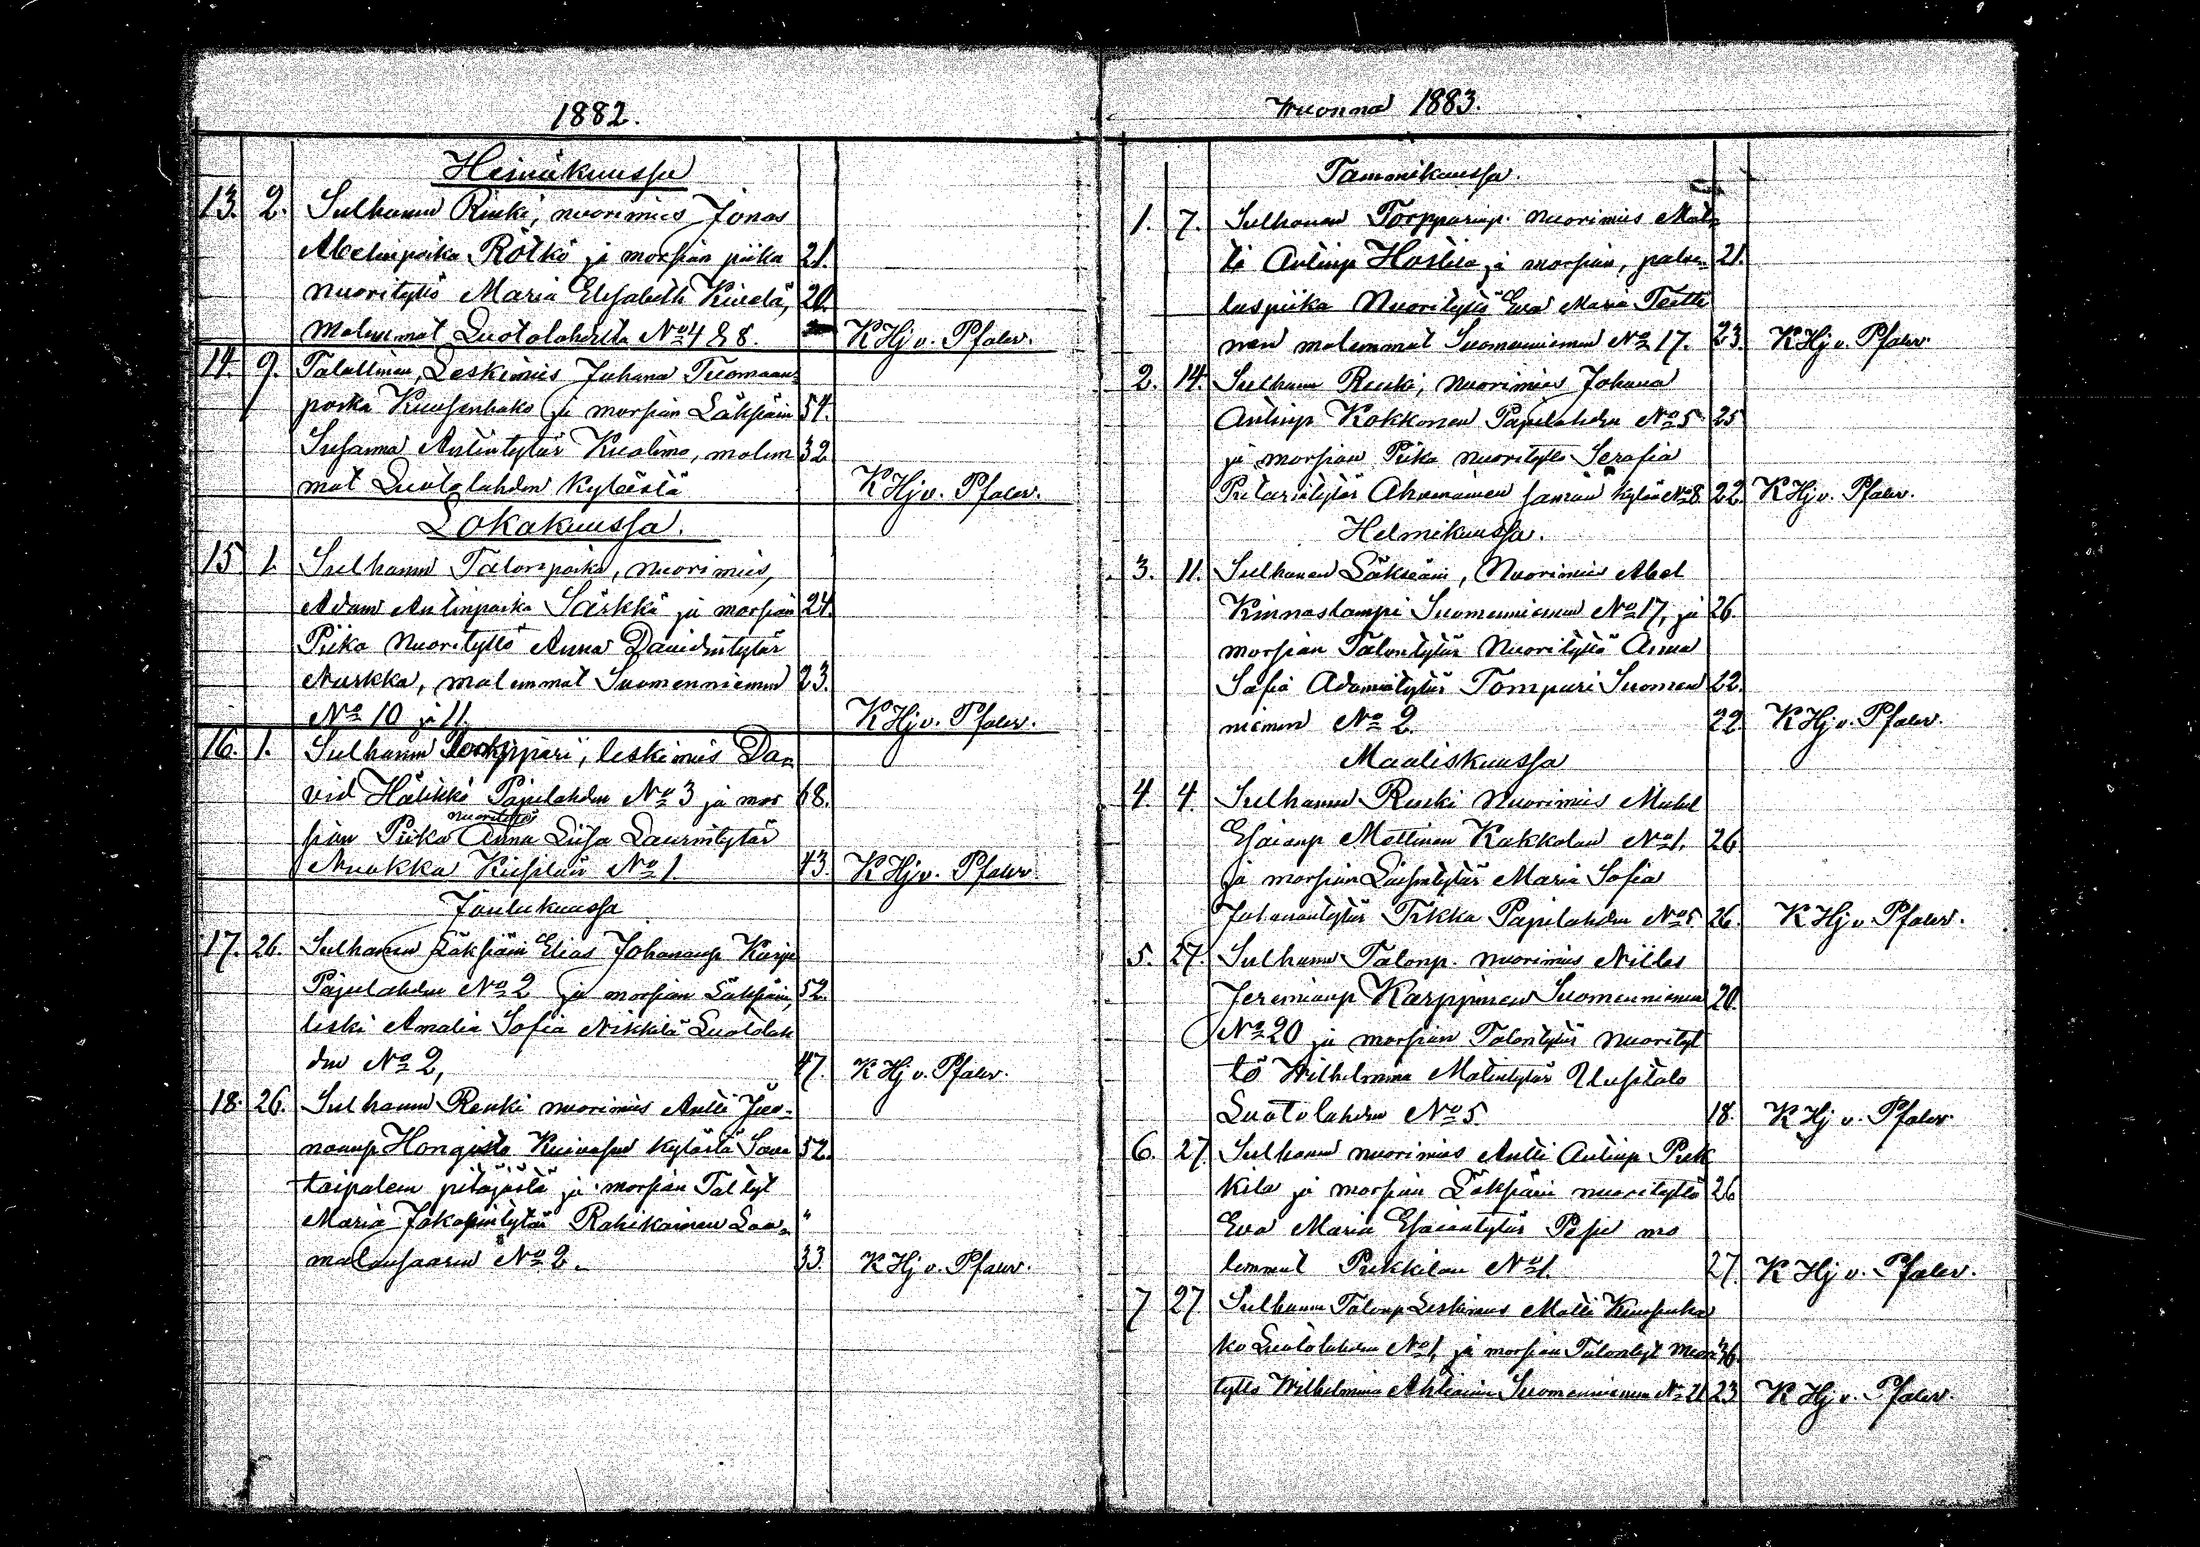 1882.
Heinäkuussa
13. 2. Sulhanen Renki, nuorimies Jonas
Abelinpoika Rötkö ja morsian piika 21.
nuorityttö Maria Elisabeth Kinelä, 20.
molemmat Luotolahdesta No 4 & 8. K Hj v. Pfaler.
14. 9. Talollinen, Leskimies Juhana Tuomaan
poika Kuusenhako ja morsian Läksiäin 54.
Susanna Antintytär Kualimo, molem 32
mat Luotolahden kylästä K Hj v. Pfaler.
Lokakuussa.
15 1. Sulhanen Talonpoika, nuorimies,
Adam Antinpoika Särkkä ja morsian 24.
Piika Nuorityttö Anna Davidintytär
Nurkka, molemmat Suomenniemen 23.
No 10 ja 11. K Hj v. Pfaler.
16. 1. Sulhanen, leskimies Da=
vid Hälikkö Pajulahden No 3 ja mor 68.
nuorityttö
sian Piika Anna Liisa Laurintytär
Nuukka Kiisilän No 1. 43. K Hj v. Pfaler
Joulukuussa
17. 26. Sulhanen Läksiäin Elias Johananp Karju
Pajulahden No 2 ja morsian Läksiäin, 52.
leski Amalia Sofia Nikkilä Luotolah
den No 2, 47. K Hj v. Pfaler.
18. 26. Sulhanen Renki nuorimies Antti Juo=
nanp Hongisto Kuivasen kylästä Sawi 52.
taipaleen pitäjästä ja morsian Tal tyt
Maria Jakopintytär Rahikainen Lau= "
malansaaren No 2. 33. K Hj v. Pfaler.
Wuonna 1883.
Tammikuussa.
1. 7. Sulhanen Torpparinp. nuorimies Mat=
ti Antinp Hostila ja morsian, palve= 21.
luspiika Nuorityttö Eva Maria Tertti
nen molemmat Suomenniemen No 17. 23. K Hj v. Pfaler.
2. 14. Sulhanen Renki, nuorimies Johana
Antinp Kokkonen Pajulahden No 5 25
ja morsian Piika nuorityttö Serafia
Pietarintytär Ahvenainen saman kylän No 8 22 K Hj v. Pfaler.
Helmikuussa.
3. 11. Sulhanen Läksiäin, Nuorimies Abel
Kinnaslampi Suomenniemen No 17, ja 26.
morsian Talontytär Nuorityttö Anna
Sofia Adamintytär Tompuri Suomen 22.
niemen No 2. 22. K Hj v. Pfaler.
Maaliskuussa
4. 4. Sulhanen Renki Nuorimies Mikel
Esaianp Mattinen Kakkolan No 1. 26.
ja morsian Läksiäintytär Maria Sofia
Juhanantytär Tikka Pajulahden No 5 26. K Hj v Pfaler.
5. 27. Sulhanen Talonp. nuorimies Nilles
Jeremianp Karppinen Suomenniemen 20.
No 20 ja morsian Talontytär Nuorityt
tö Wilhelmina Matintytär Uusitalo
Luotolahden No 5. 18. K Hj v. Pfaler.
6. 27. Sulhanen nuorimies Antti Antinp Puk
kila ja morsian Läksiäin nuorityttö 26
Eva Maria Esaiantytär Pesu mo
lemmat Pukkilan No 1. 27. K Hj v. Pfaler.
7 27 Sulhanen Talonp Leskimies Matti Kuusenha
ko Luotolahden No 1, ja morsian Talontyt nuori 36.
tyttö Wilhelmina Ahtiainen Suomenniemen No 21 23 K Hj v. Pfaler.